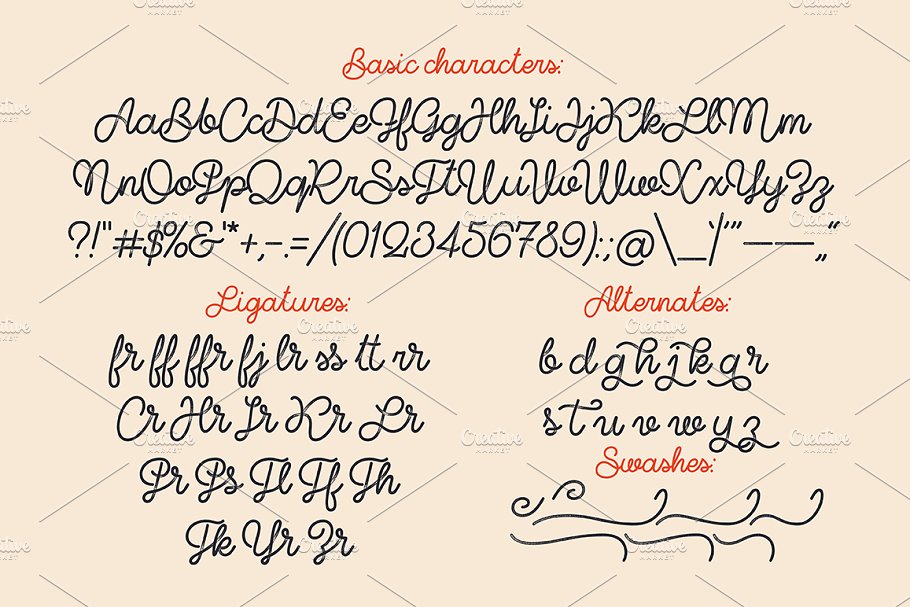 Basic characters:
AaBbCcDdEeFfGgHhIiJjKkLlMm
NnOoPpQqRrSsTtUuVvWwXxYyZz
?!"#$%&'*+,-.=/(0123456789):;@\_`|'"——„“
Ligatures:
fr ff ffr fj lr ss tt rr
Cr Hr Ir Kr Lr
Pr Ps Tl Tf Th
Tk Yr Zr
Alternates:
b d g h j k q r
s t u v w y z
Swashes:
Creative MARKET